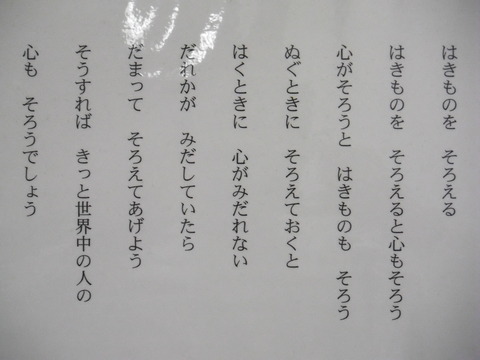 はきものを　そろえる
はきものを　そろえると心もそろう
心がそろうと　はきものも　そろう
ぬぐときに　そろえておくと
はくときに　心がみだれない
だれかが　みだしていたら
だまって　そろえてあげよう
そうすれば　きっと世界中の人の
心も　そろうでしょう